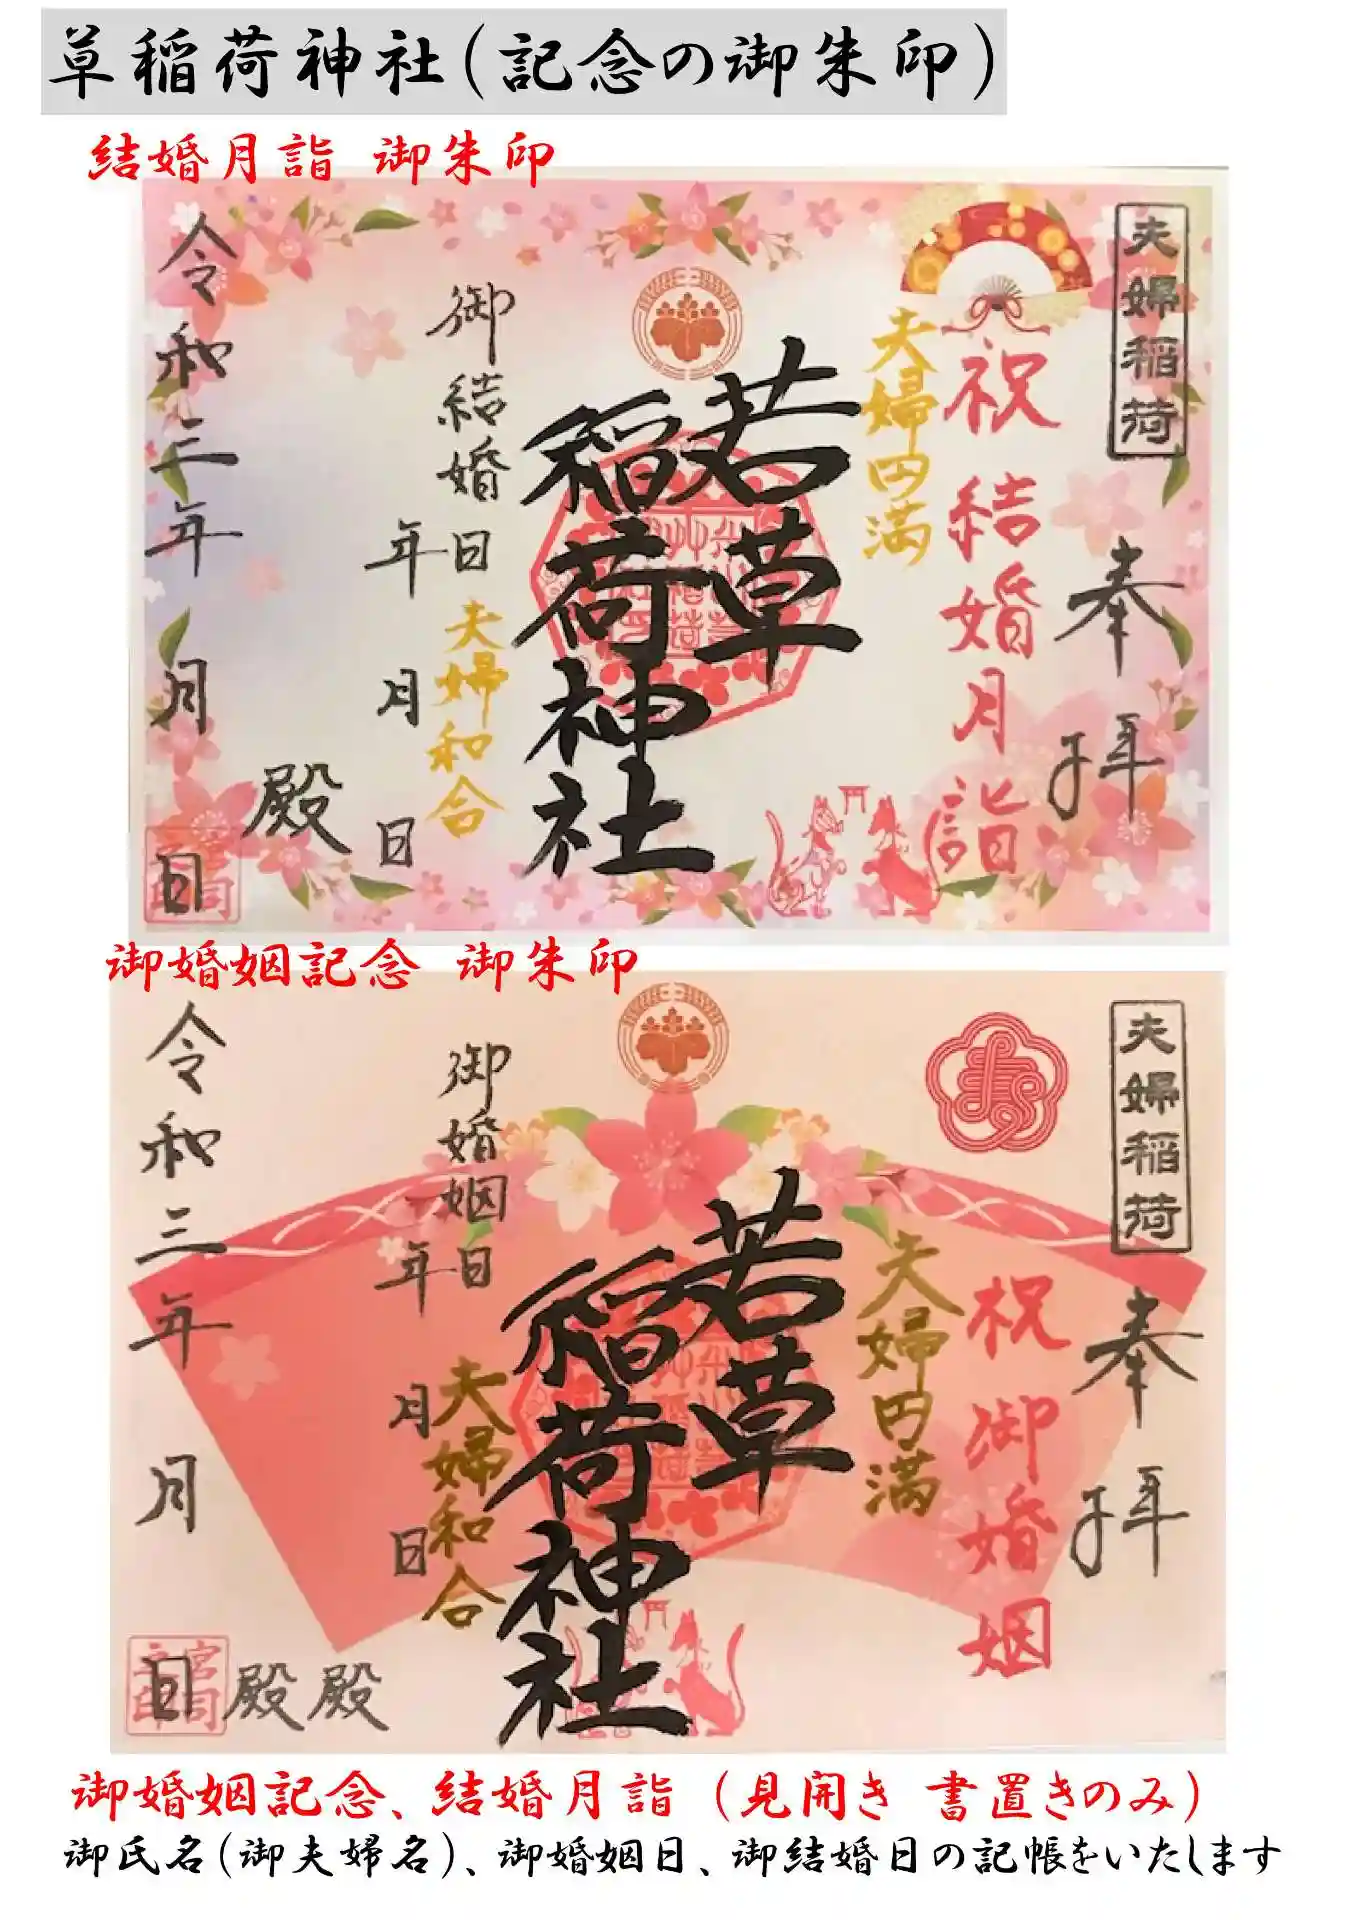 草稲荷神社(記念の御朱印)
結婚月詣 御朱印
夫婦稲荷
奉拝
祝 結婚月詣
夫婦円満
若草
稲荷神社
御結婚日
夫婦和合
年 月 日
殿
令和三年 月 日
御婚姻記念 御朱印
夫婦稲荷
奉拝
祝御婚姻
夫婦円満
若草
稲荷神社
御婚姻日
夫婦和合
年 月 日
殿 殿
令和三年 月 日
御婚姻記念、結婚月詣(見開き 書置きのみ)
御氏名(御夫婦名)、御婚姻日、御結婚日の記帳をいたします